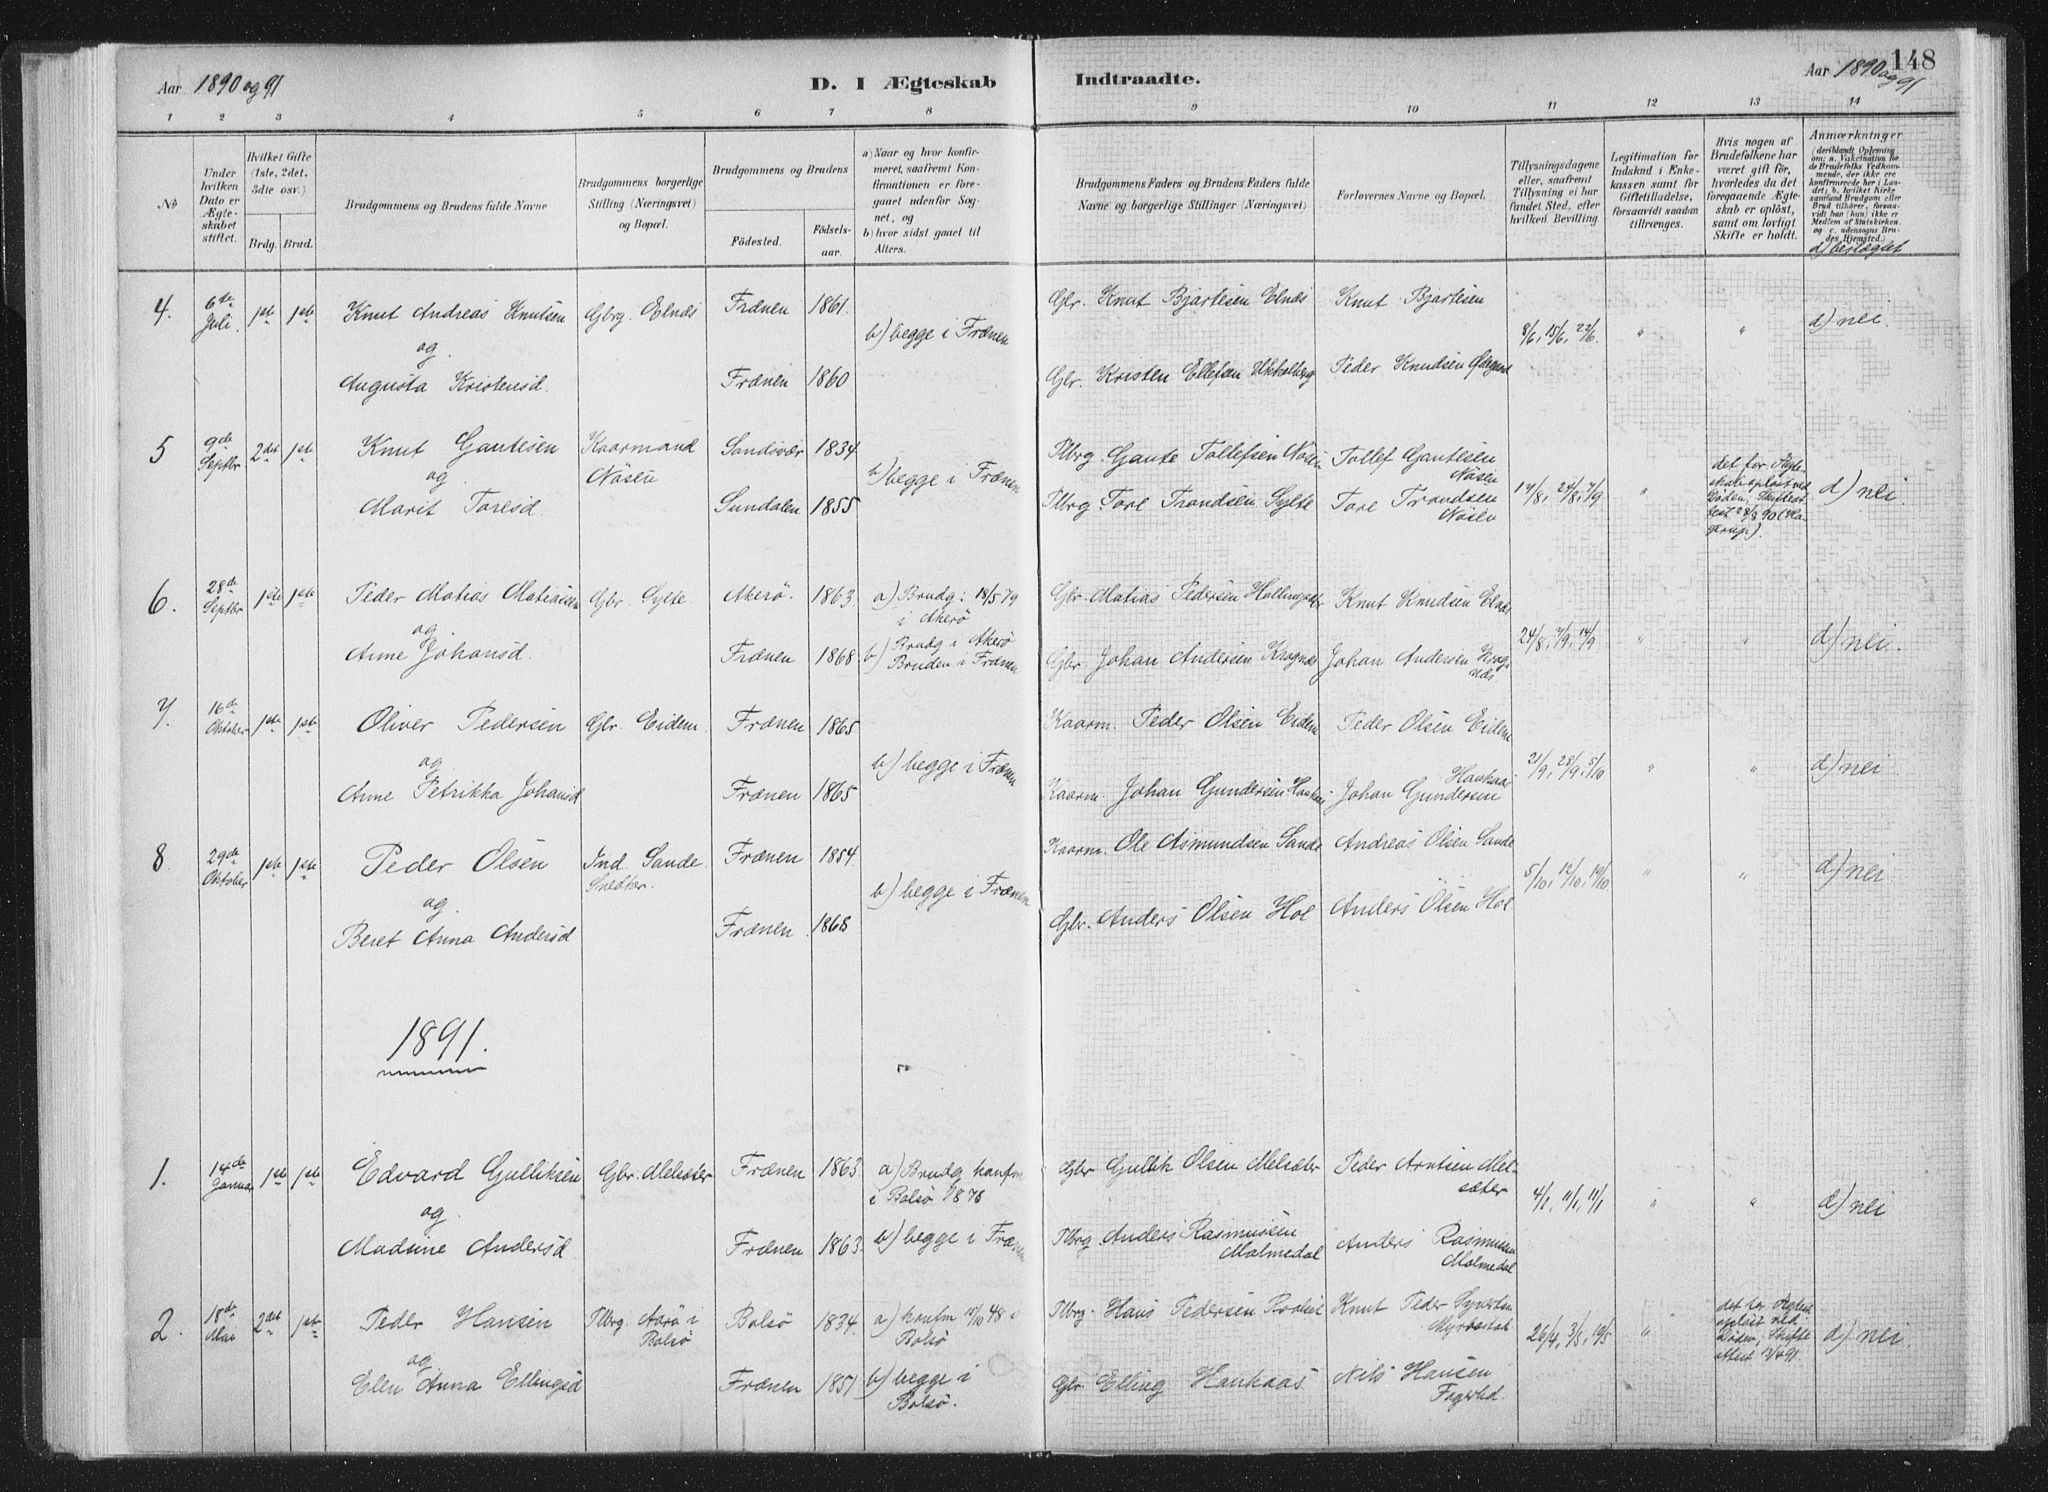 148
Aar 1890 og 91
D. I Ægteskab Indtraadte.
Aar 1890 og 91
1 2 3 4 5 6 7 8 9 10 11 12 13 14
№
Under hvilken Dato er Ægteskabet stiftet.
Hvilket Gifte (1ste, 2det, 3dte osv.)
Brdg. Brud.
Brudgommens og Brudens fulde Navne
Brudgommens borgerlige Stilling (Næringsvei) og Bopæl.
Brudgommens og Brudens
Fødested.
Fødselsaar.
a) Naar og hvor konfirmeret, saafremt Konfirmationen er foregaaet udenfor Sognet, og
b) hvor sidst gaaet til Alters.
Brudgommens Faders og Brudens Faders fulde Navne og borgerlige Stillinger (Næringsvei)
Forlovernes Navne og Bopæl.
Tillysningsdagene eller, saafremt Tillysning ei har fundet Sted, efter hvilken Bevilling.
Legitimation for Indskud i Enkekassen samt for Giftetilladelse, forsaavidt saadan tiltrænges.
Hvis nogen af Brudefolkene har været gift før, hvorledes da det foregaaende Ægteskab er opløst, samt om lovligt Skifte er holdt.
Anmærkninger
(deriblandt Oplysning om: a. Vakcination for de Brudefolks Vedkommende, der ikke ere konfirmerede her i Landet; b. hvilket Kirkesamfund Brudgom eller Brud tilhører, forsaavidt han (hun) ikke er Medlem af Statskirken, og c. udensogns Brudes Hjemsted.)
d) beslægtet
4. 6te Juli. 1ste 1ste Knut Andreas Knutsen Gbrg. Elnæs Frænen 1861. Gbr. Knut Bjartesen Elnæs Knut Bjartesen
og b) begge i Frænen 8/6, 15/6, 22/6. " " d) nei.
Augusta Kristensd. Frænen 1860 Gbr. Kristen Ellefsen Peder Knudsen
5 9de Septbr 2det 1ste Knut Gautesen Kaarmand Nøsen Sandsvær 1834 Plbrg. Gaute Tollefsen Nøsen Tollef Gautesen Nøsen
og b) begge i Frænen 17/8, 24/8, 7/9 " det før. Ægteskab opløst ved Døden, Skifteattest 28/8 90 d) nei
Marit Toresd. Sundalen 1855 Plbrg Tore Trondsen Sylte Tore Trondsen Nøsen
6. 28de Septbr 1ste 1ste Peder Matias Matiassen Gbr. Sylte. Akerø. 1863. a) Brudg: 18/5 79 i Akerø Gbr. Matias Pedersen Knut Knudsen Elnæs
og 24/8, 7/9, 14/9 " " d) nei.
Anne Johansd. Frænen 1868. b) Brudg i Akerø Bruden i Frænen Gbr. Johan Andersen Krognæs Johan Andersen Krognæs
7. 16de Oktober 1ste 1ste Oliver Pedersen Gbr. Eidem. Frænen 1865 Kaarm. Peder Olsen Eidem Peder Olsen Eidem
og b) begge i Frænen 21/9, 28/9, 5/10 " " d) nei
Anne Petrikka Johansd Frænen 1865 Kaarm. Johan Gundersen Haukaas Johan Gundersen Haukaas
8. 29de Oktober 1ste 1ste Peder Olsen Ind. Sande Snedker. Frænen 1854. Kaarm. Ole Asmundsen Sande Andreas Olsen Sande
og b) begge i Frænen 5/10, 12/10, 19/10 " " d) nei
Beret Anna Andersd Frænen 1868 Gbr. Anders Olsen Hol Anders Olsen Hol
1891.
1. 14de Januar 1ste 1ste Edvard Gulliksen Gbr. Melsæter Frænen 1863. a) Brudg konfm i Bolsø 1878 Gbr Gullik Olsen Melsæter Peder Arntsen Melsæter
og 4/1, 11/1, 11/1 " " d) nei
Madsine Andersd Frænen 1863. b) begge i Frænen Plbrg. Anders Rasmussen Malmedal Anders Rasmussen Malmedal
2. 18de Mai 2det 1ste Peder Hansen Plbrg. Aarø i Bolsø Bolsø 1834. a) konfm 15/10 48 i Bolsø Plbrg. Hans Pedersen Knut Peder
og 26/4, 3/5, 10/5 " det før. Ægtes. opløst ved Døden, Skifteattest d) nei
Elen Anna Ellingsd Frænen 1851 b) begge i Bolsø. Gbr. Elling Haukaas Nils Hansen